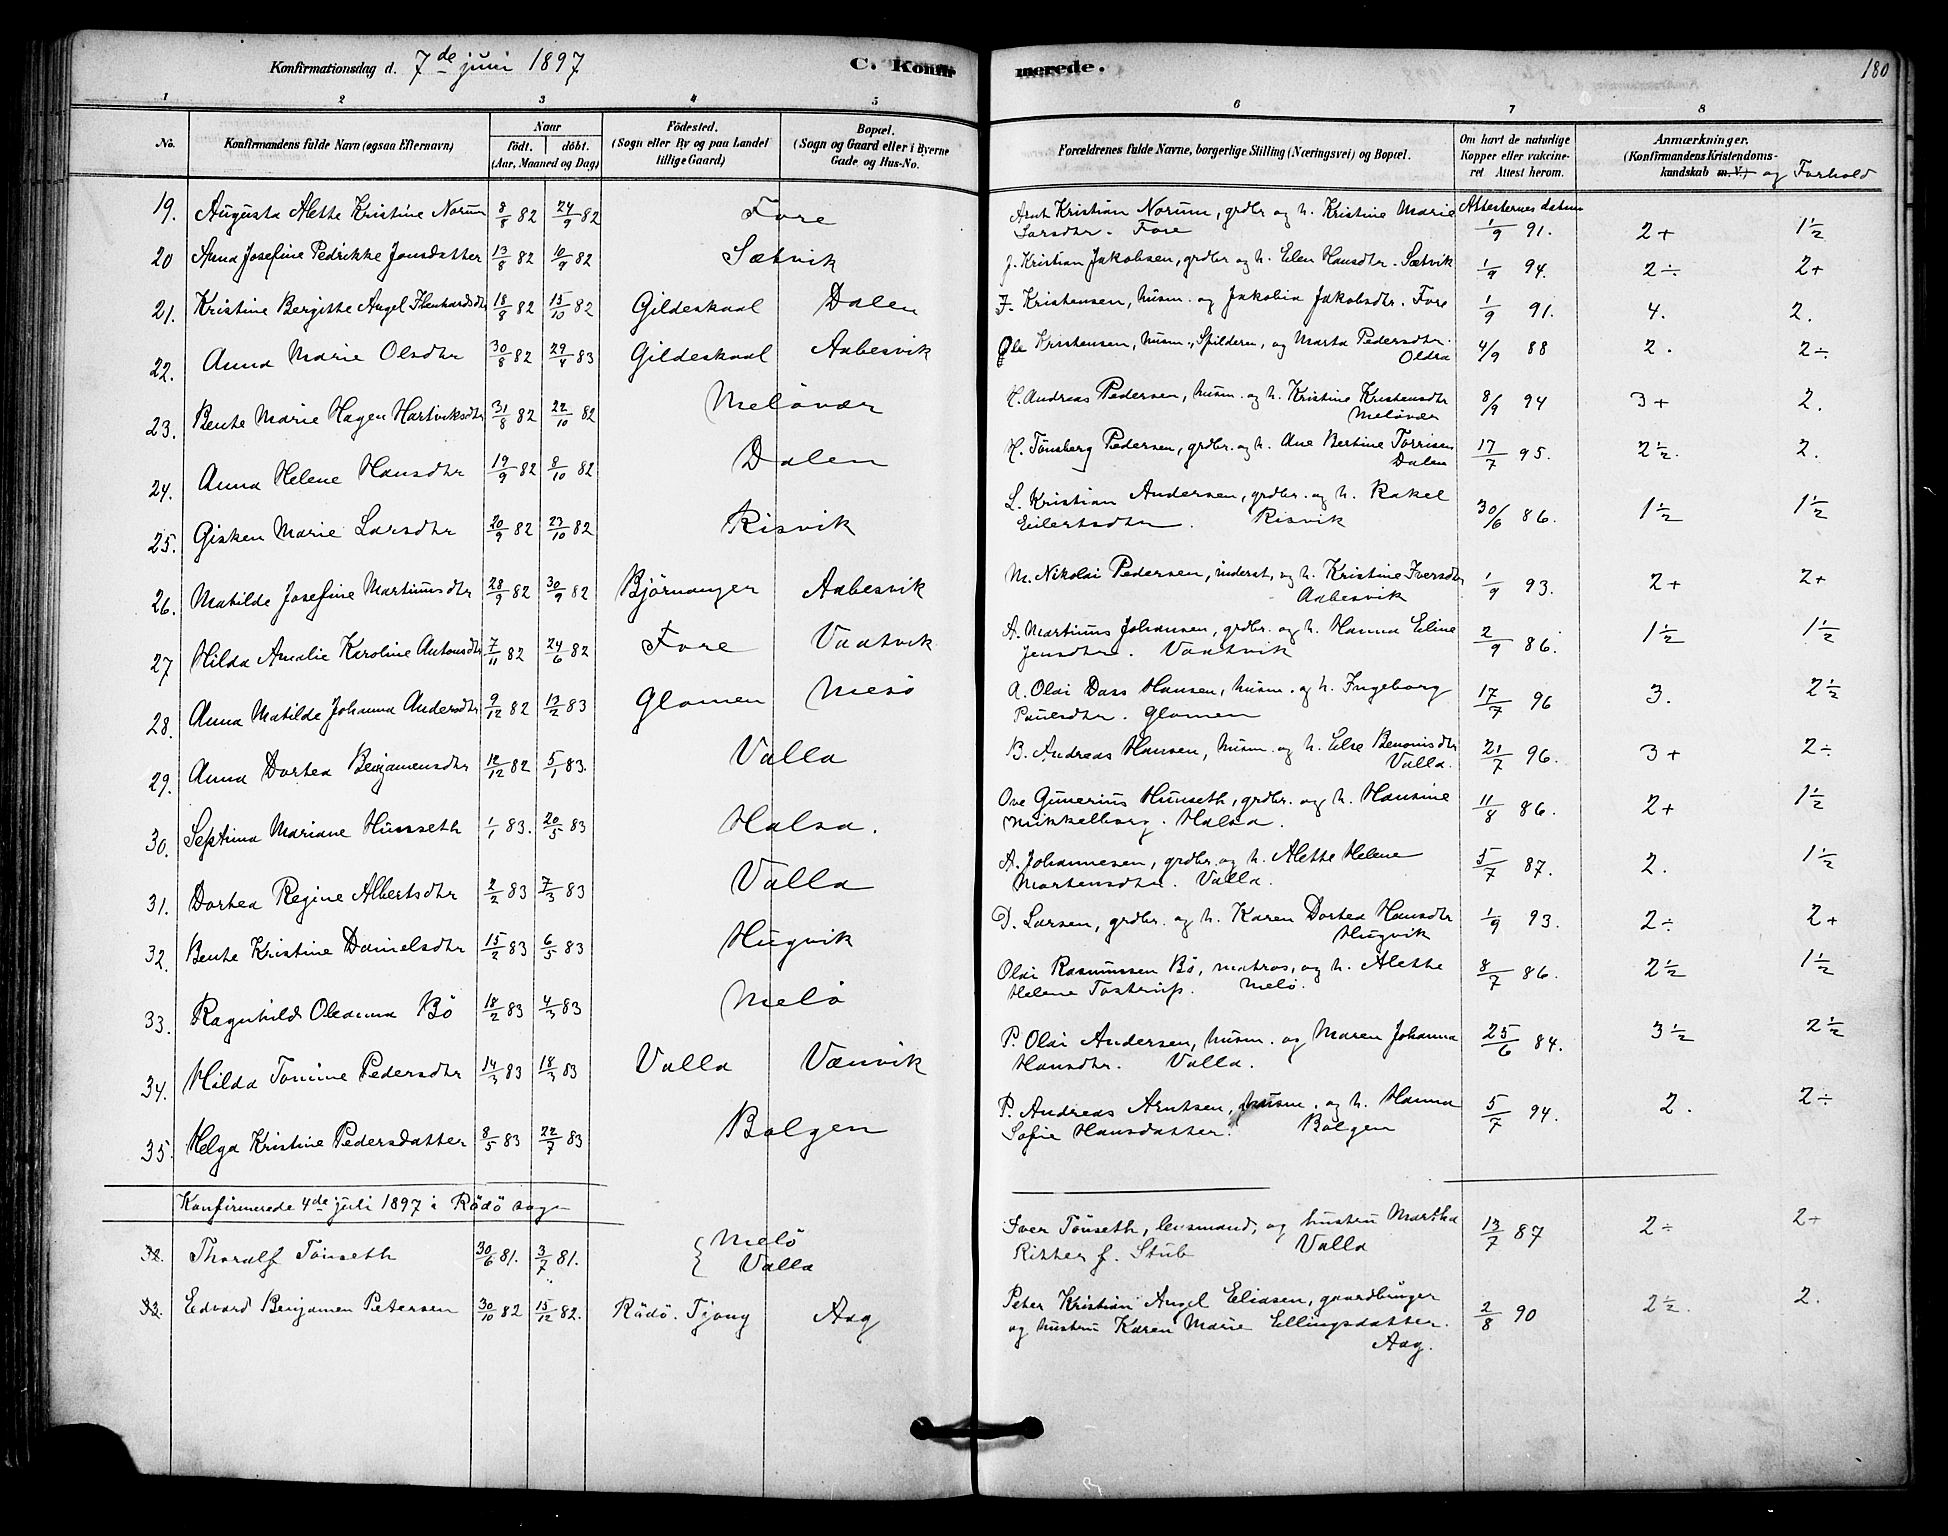 Konfirmationsdag d. 7de juni 1897 C. Konfirmerede. 180
1 2 3 4 5 6 7 8
No. Konfirmandens fulde Navn (ogsaa Efternavn) Naar født. døbt. (Aar, Maaned og Dag) Fødested. (Sogn eller By og paa Landet tillige Gaard) Bopæl. (Sogn og Gaard eller i Byerne Gade og Hus-No. Forældrenes fulde Navne, borgerlige Stilling (Næringsvei) og Bopæl. Om havt de naturlige Kopper eller vakcineret Attest herom. Anmærkninger. (Konfirmandens Kristendomskundskab m. V.) og Forhold
Attesternes datum
19. Augusta Alette Kristine Norum 8/8 82 24/9 82 Fore Arnt Kristian Norum, grdbr og h. Kristine Marie Larsdtr. Fore 1/9 91. 2+ 1½
20 Anna Josefine Pedrikke Jonsdatter 13/8 82 10/9 82 Sætvik J. Kristian Jakobsen, grdbr og h. Elen Hansdtr. Sætvik 1/9 94. 2÷ 2+
21. Kristine Bergitte Angel 18/8 82 15/10 82 Gildeskaal Dalen F. Kristensen, husm. og Jakobia Jakobsdtr. Fore 1/9 91. 4. 2.
22. Anna Marie Olsdtr 30/8 82 29/4 83 Gildeskaal Aabesvik Ole Kristensen, husm., Spildern, og Marta Pedersdtr. Oldra 4/9 88 2. 2÷.
23. Bente Marie Hagen Hartviksdtr 31/8 82 22/10 82 Meløvær H. Andreas Pedersen, husm. og h. Kristine Kristensdtr Meløvær 8/9 94 3+ 2.
24. Anna Helene Hansdtr 19/9 82 8/10 82 Dalen H. Tønsberg Pedersen, grdbr. og h. Ane Bertine Torrisen Dalen 17/7 95. 2½. 2.
25. Gisken Marie Larsdtr 20/9 82 23/10 82 Risvik L. Kristian Andersen, grdbr. og h. Rakel Eilertsdtr. Risvik 30/6 86. 1½ 1½
26. Matilde Josefine Martinusdtr 28/9 82 30/9 82 Bjørnanger Aabesvik M. Nikolai Pedersen, inderst, og h. Kristine Iversdtr Aabesvik 1/9 93. 2+ 2+
27 Hilda Amalie Karoline Antonsdtr 7/11 82 24/6 82 Fore Vaatvik A. Martinus Johansen, grdbr. og h. Hanna Eline Jensdtr. Vaatvik 2/9 86. 1½ 1½
28. Anna Matilde Johanna Andersdtr 9/12 82 13/2 83 Glomen Mesø A. Olai Dass Hansen, husm. og h. Ingeborg Paulsdtr. Glomen 17/7 96 3. 2½
29. Anna Dortea Benjamensdtr 12/12 82 5/1 83. Valla B. Andreas Hansen, husm. og h. Else Benonisdtr Valla. 21/7 96. 3+ 2÷
30. Septima Mariane Hunseth 1/1 83. 20/5 83 Halsa. Ove Gunerius Hunseth, grdbr. og h. Hansine Mikkelborg. Halsa. 11/8 86. 2+ 1½
31. Dortea Regine Albertsdtr 2/2 83 7/3 83 Valla A. Johannesen, grdbr. og h. Alette Helene Mortensdtr. Valla. 5/7 87. 2. 1½
32. Bente Kristine Danielsdtr 15/2 83 6/5 83 Hugvik D. Larsen, grdbr. og h. Karen Dortea Hansdtr Hugvik 1/9 93. 2÷ 2+
33. Ragnhild Oleanna Bø 18/2 83 4/3 83 Melø Olai Rasmussen Bø, matros, og h. Alette Helene Tostrup. Melø. 8/7 86. 2½ 1½
34. Hilda Tomine Pedersdtr 14/3 83 18/3 83 Valla Vænvik P. Olai Andersen, husm. og Maren Johanna Hansdtr. Valla. 25/6 84. 3½ 2½
35. Helga Kristine Pedersdatter 8/5 83 22/7 83 Bolgen P. Andreas Arntsen, husm. og h. Hanna Sofie Hansdatter. Bolgen 5/7 94. 2. 2÷
Konfirmerede 4de juli 1897 i Rødø sogn
32. Thoralf Tønseth 30/6 81. 3/7 81. Melø Valla Iver Tønseth, lensmand, og hustru Martha Ritter f. Stub Valla 13/7 87 2÷ 2+
33. Edvard Benjamen Petersen 30/10 82 15/12 82. Rødø. Tjong Aag Peter Kristian Angel Eliasen, gaardbruger og hustru Karen Marie Ellingsdatter. Aag. 2/8 90 2½. 2.